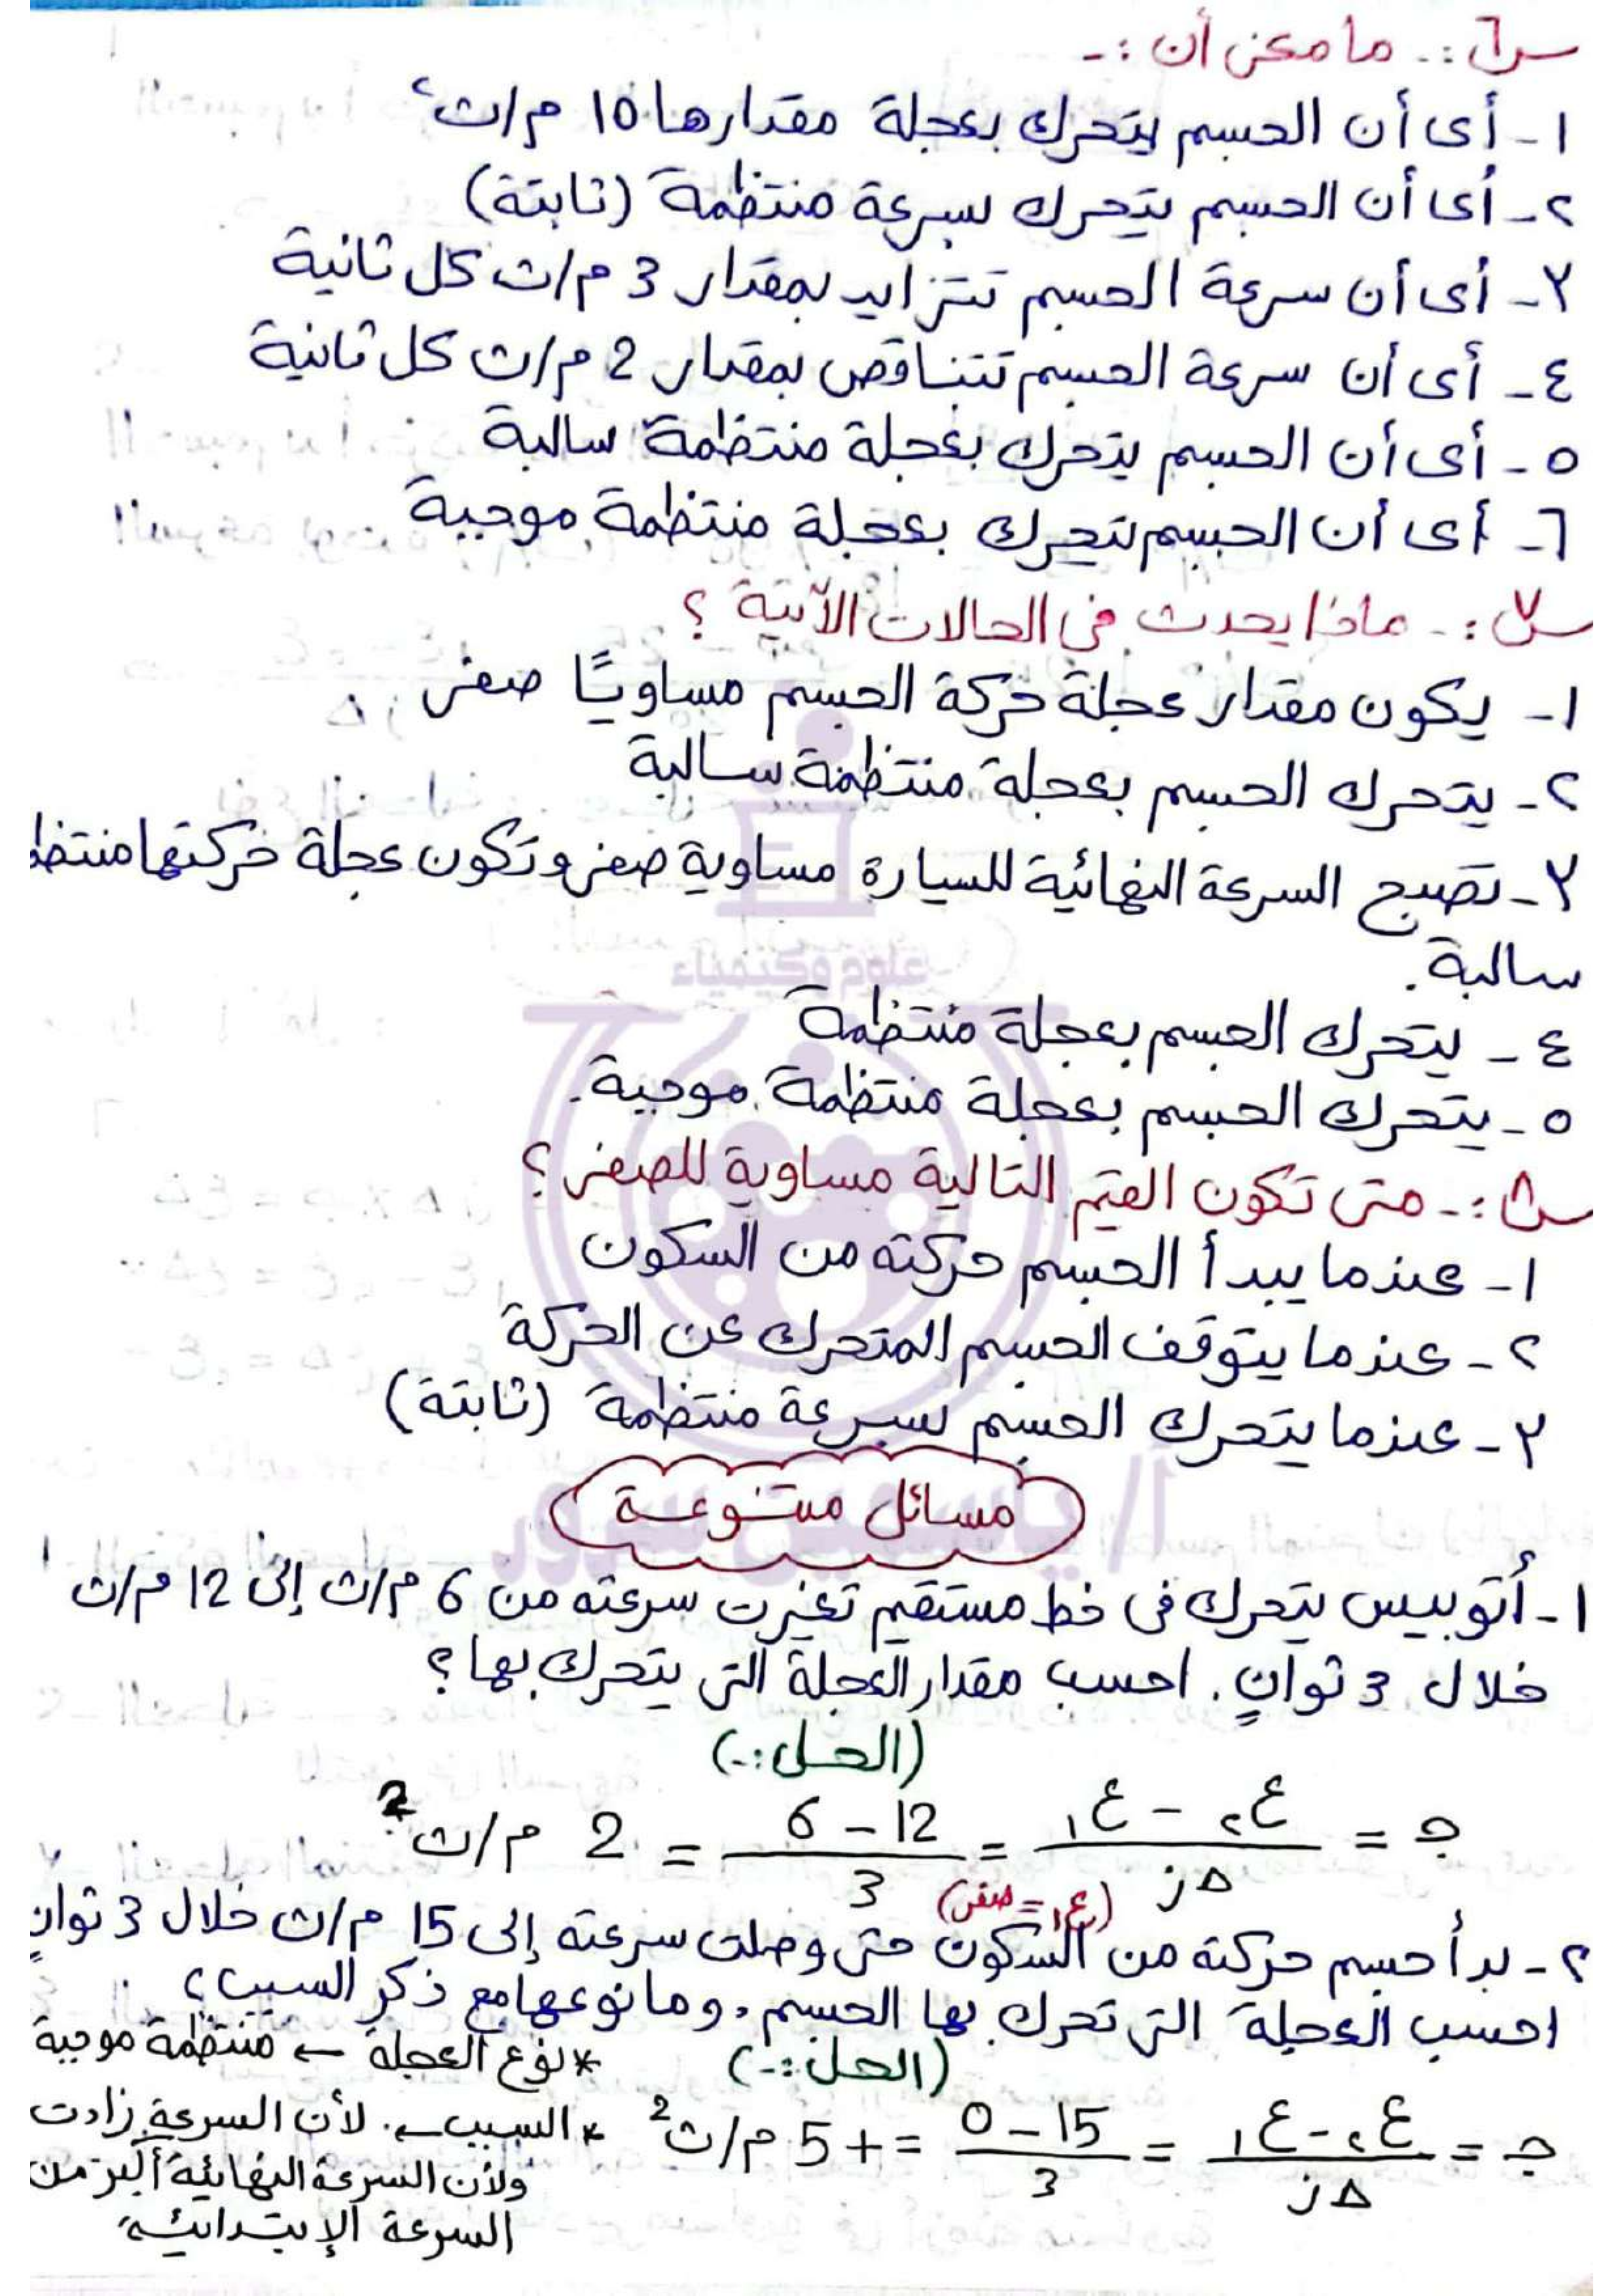 س٦ :- ما معنى أن :-
١- أى أن الجسم يتحرك بعجلة مقدارها 10 م/ث٢
٢- أى أن الجسم يتحرك بسرعة منتظمة (ثابتة)
٣- أى أن سرعة الجسم تتزايد بمقدار 3 م/ث كل ثانية
٤- أى أن سرعة الجسم تتناقص بمقدار 2 م/ث كل ثانية
٥- أى أن الجسم يتحرك بعجلة منتظمة سالبة
٦- أى أن الجسم يتحرك بعجلة منتظمة موجبة
س٧ :- ماذا يحدث فى الحالات الآتية ؟
١- يكون مقدار عجلة حركة الجسم مساويًا صفر .
٢- يتحرك الجسم بعجلة منتظمة سالبة
٣- تصبح السرعة النهائية للسيارة مساوية صفر وتكون عجلة حركتها منتظ
سالبة .
٤- يتحرك الجسم بعجلة منتظمة
٥- يتحرك الجسم بعجلة منتظمة موجبة .
س٨ :- متى تكون القيم التالية مساوية للصفر ؟
١- عندما يبدأ الجسم حركته من السكون
٢- عندما يتوقف الجسم المتحرك عن الحركة
٣- عندما يتحرك الجسم بسرعة منتظمة (ثابتة)
علوم وكيمياء
أ/ ياسمين سرور
مسائل متنوعة
١- أتوبيس يتحرك فى خط مستقيم تغيرت سرعته من 6 م/ث إلى 12 م/ث
خلال 3 ثوانٍ . احسب مقدار العجلة التى يتحرك بها ؟
(الحل :-)
جـ = ع٢ - ع١ / Δز = 12 - 6 / 3 = 2 م/ث2
(ع١ = صفر)
٢- بدأ جسم حركته من السكون حتى وصلت سرعته إلى 15 م/ث خلال 3 ثوانٍ
احسب العجلة التى تحرك بها الجسم ، وما نوعها مع ذكر السبب ؟
(الحل :-)
* نوع العجلة ← منتظمة موجبة
جـ = ع٢ - ع١ / Δز = 15 - 0 / 3 = +5 م/ث2
* السبب ← لأن السرعة زادت
ولأن السرعة النهائية أكبر من
السرعة الإبتدائية